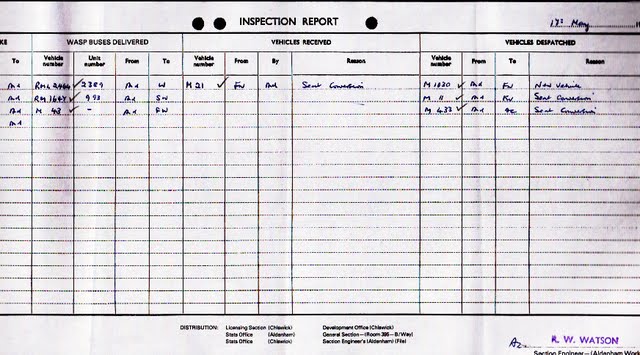 INSPECTION REPORT 17th May
KE WASP BUSES DELIVERED VEHICLES RECEIVED VEHICLES DESPATCHED
To Vehicle number Unit number From To Vehicle number From By Reason Vehicle number From To Reason
Ad 2389 Ad W M 21 ✓ FW Ad Seat Conversion M 1030 ✓ Ad FW New Vehicle
Ad RM 1647 ✓ 993 Ad SW M 11 ✓ Ad Seat Conversion
Ad M 43 ✓ - Ad FW M 433 ✓ Ad Seat Conversion
Ad
DISTRIBUTION: Licensing Section (Chiswick) Development Office (Chiswick)
Stats Office (Aldenham) General Section - (Room 395 - B/Way)
Stats Office (Chiswick) Section Engineer's (Aldenham) (File)
R. W. WATSON
Section Engineer - (Aldenham Work